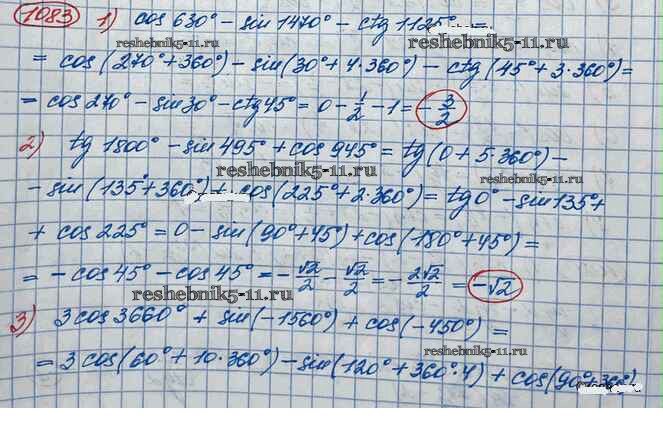 1083 1) cos 630° - sin 1470° - ctg 1125° =
reshebnik5-11.ru
= cos(270° + 360°) - sin(30° + 4·360°) - ctg(45° + 3·360°) =
= cos 270° - sin 30° - ctg 45° = 0 - 1/2 - 1 = -3/2
reshebnik5-11.ru
2) tg 1800° - sin 495° + cos 945° = tg(0 + 5·360°) -
reshebnik5-11.ru
reshebnik5-11.ru
- sin(135° + 360°) + cos(225° + 2·360°) = tg 0° - sin 135° +
+ cos 225° = 0 - sin(90° + 45°) + cos(180° + 45°) =
reshebnik5-11.ru
= - cos 45° - cos 45° = - √2/2 - √2/2 = - 2√2/2 = -√2
reshebnik5-11.ru
3) 3 cos 3660° + sin(-1560°) + cos(-450°) =
reshebnik5-11.ru
= 3 cos(60° + 10·360°) - sin(120° + 360°·4) + cos(90° + 360°)